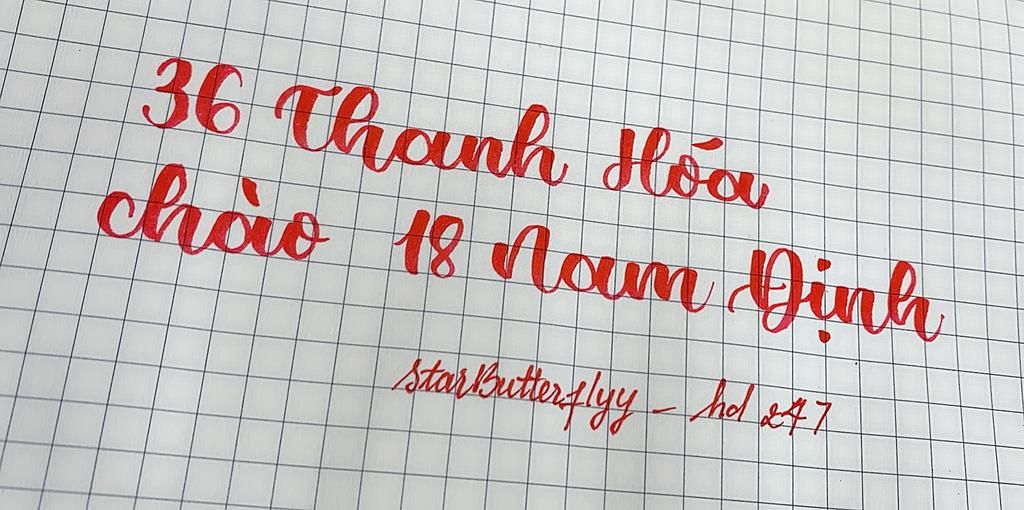 36 Thanh Hóa
chào 18 Nam Định
starButterflyy - hd 247